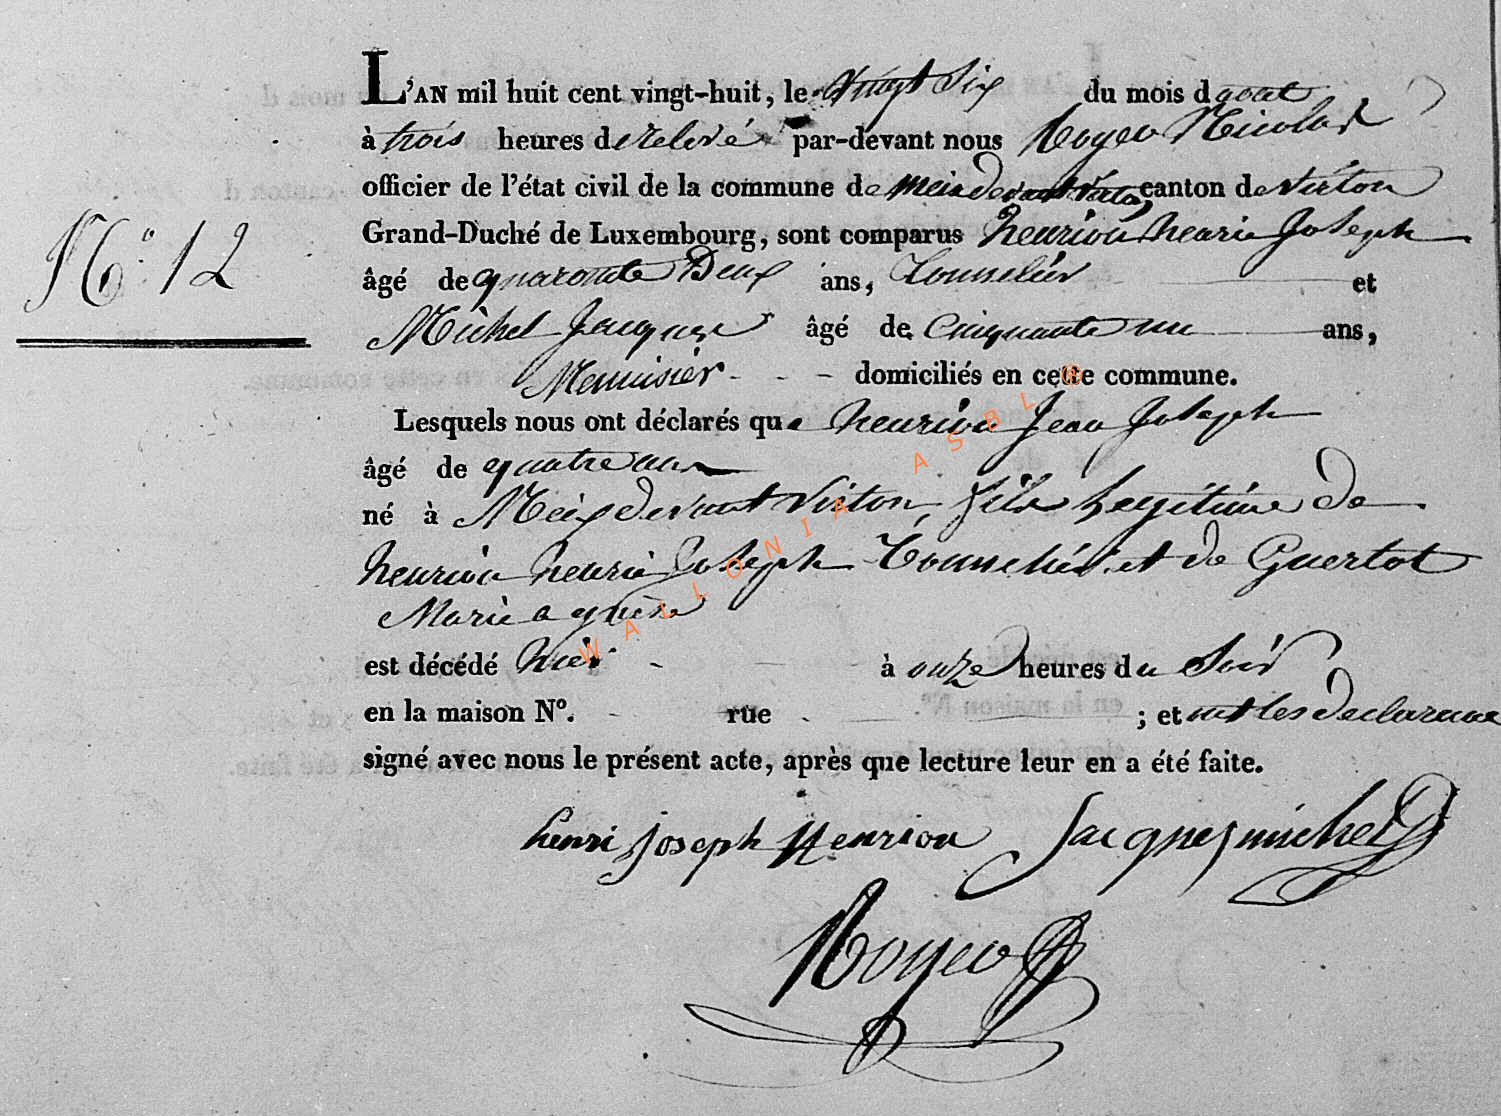 L'AN mil huit cent vingt-huit, le vingt Six du mois d aout
à trois heures de relevé par-devant nous Royer Nicolas
officier de l'état civil de la commune de meix devant virton, canton de virton
Grand-Duché de Luxembourg, sont comparus henrion henri Joseph
N° 12
âgé de quarante Deux ans, Tonnelier et
Michel Jacques âgé de Cinquante un ans,
Menuisier - - - domiciliés en cette commune.
Lesquels nous ont déclarés que henrion Jean Joseph
âgé de quatre ans
né à Meix devant Virton, fils Legitime de
henrion henri Joseph Tonnelier et de Guertot
Marie agnès
est décédé hier à onze heures du Soir
en la maison N°. rue ; et ont les declarans
signé avec nous le présent acte, après que lecture leur en a été faite.
henri joseph Henrion Jacques michel
Royer
WALLONIA ASBL ®